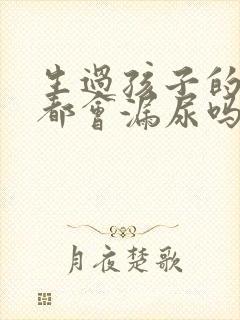 生过孩子的
都会漏尿吗
月夜楚歌